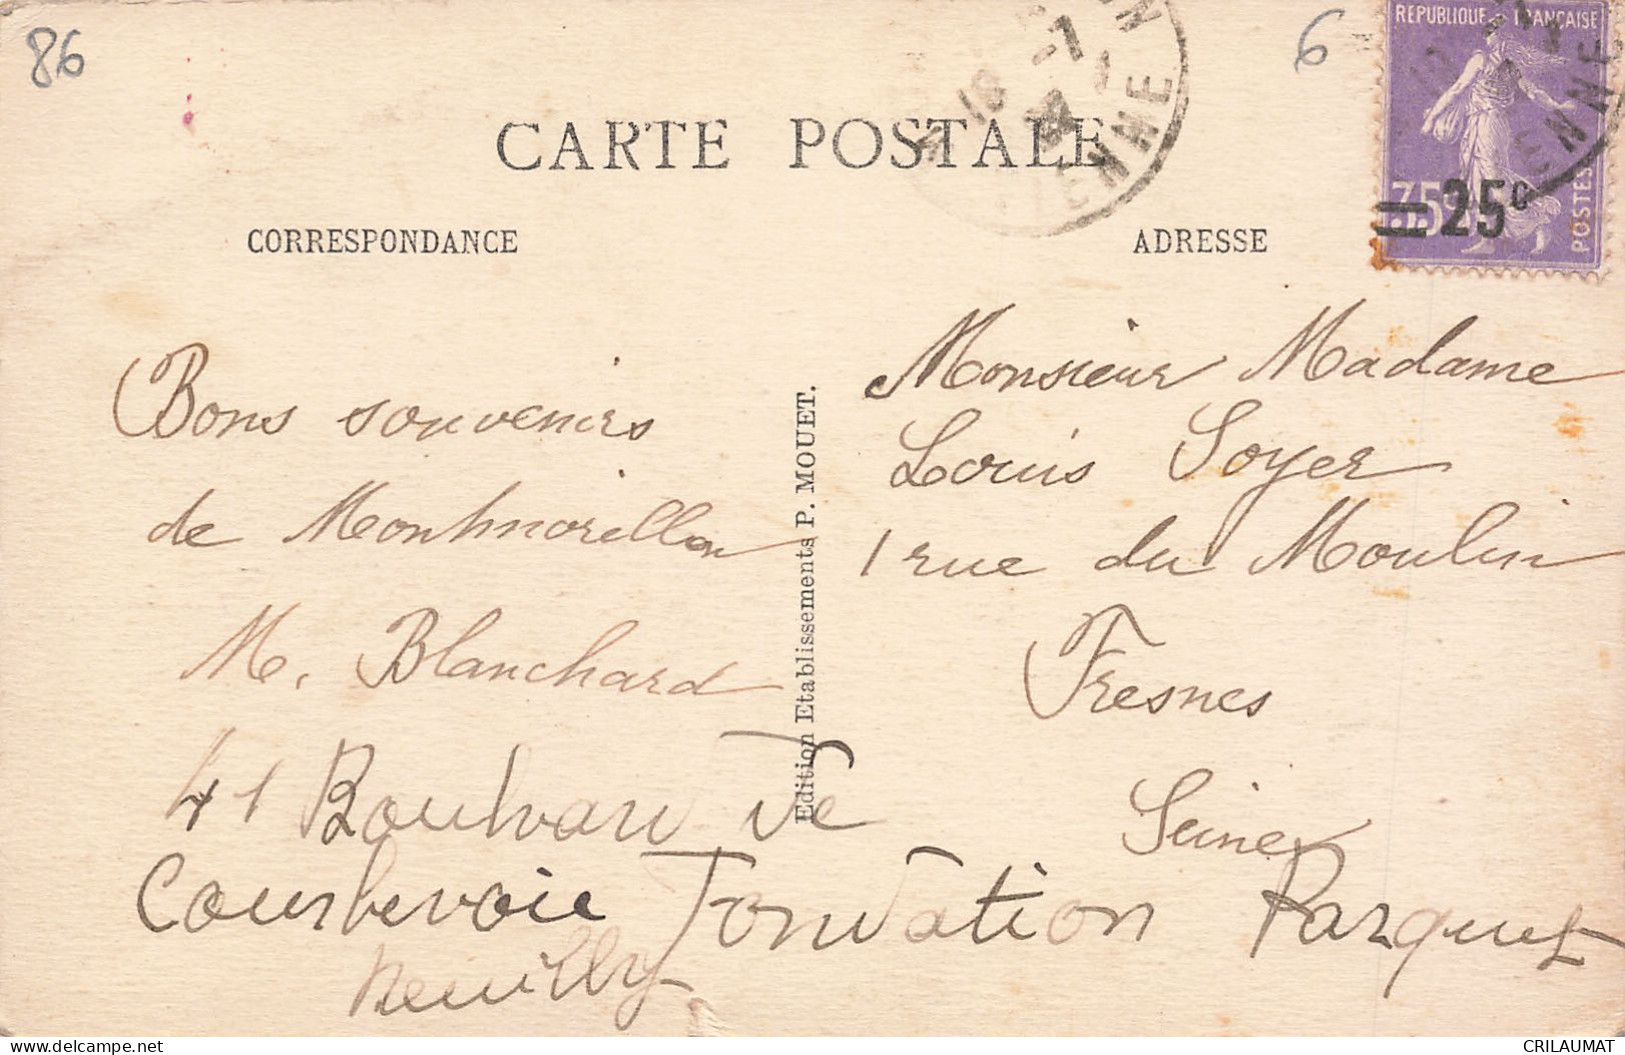 86
6
REPUBLIQUE FRANÇAISE
35c
25c
POSTES
CARTE POSTALE
CORRESPONDANCE
ADRESSE
Bons souvenirs
de Montmorillon
M. Blanchard
41 Boulvard de
Courbevoie Fondation Parquet
Neuilly
Edition Etablissements P. MOUET.
Monsieur Madame
Louis Soyer
1 rue du Moulin
Fresnes
Seine
www.delcampe.net
CRILAUMAT